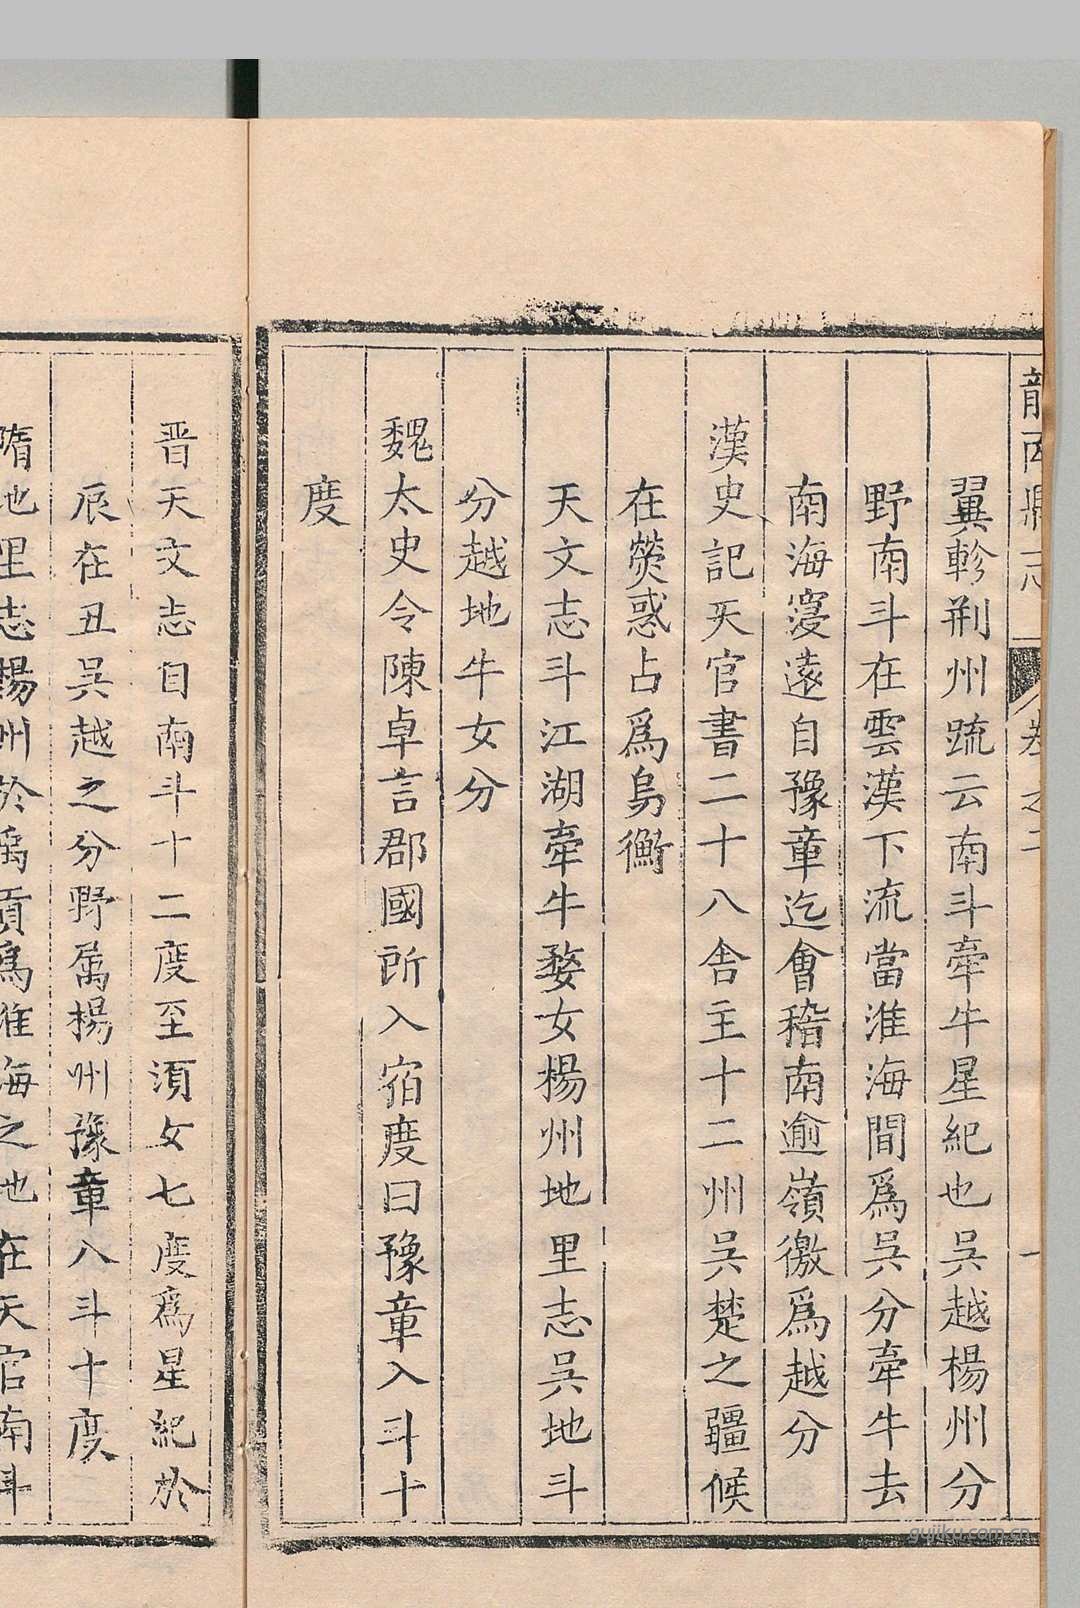 龍南縣志 卷之二 一
翼軫荆州䟽云南斗牽牛星紀也吳越楊州分
野南斗在雲漢下流當淮海間爲吳分牽牛去
南海寖遠自豫章迄會稽南逾嶺徼爲越分
漢史記天官書二十八舍主十二州吳楚之疆候
在熒惑占爲鳥衡
天文志斗江湖牽牛婺女楊州地里志吳地斗
分越地牛女分
魏太史令陳卓言郡國所入宿度曰豫章入斗十
度
晋天文志自南斗十二度至湏女七度爲星紀於
辰在丑吳越之分野属楊州豫章入斗十度
隋地里志楊州於禹貢爲淮海之地在天官南斗
gujiku.com.cn